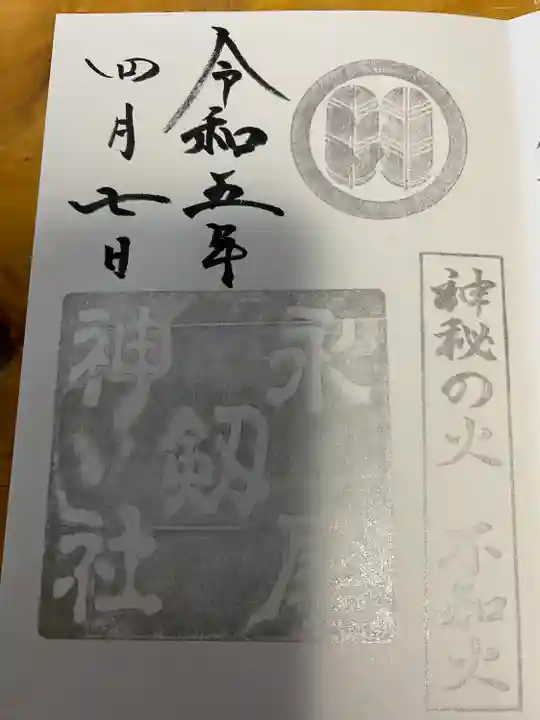 神秘の火 不知火
令和五年
四月七日
永尾
剱
神社